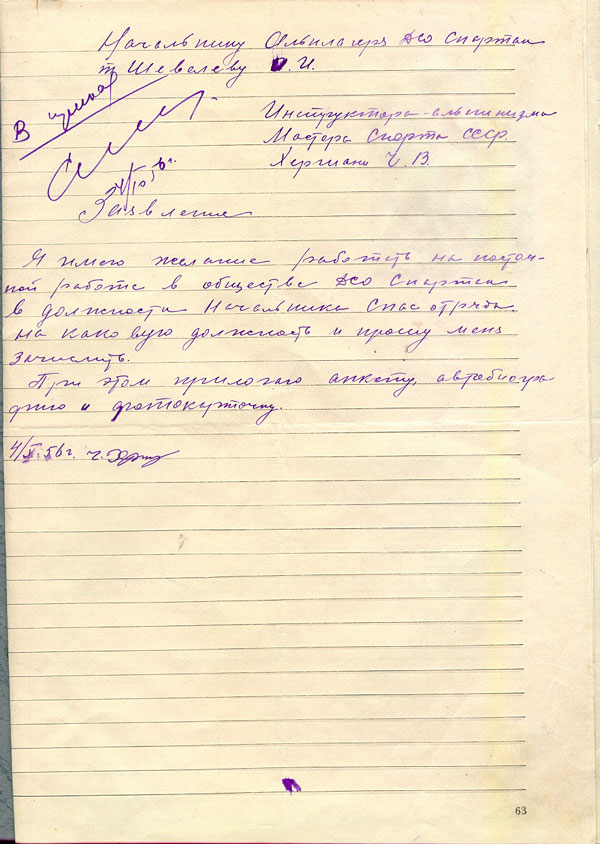 Начальнику Альплагеря ДСО Спартак
т Шевелеву И. И.
В приказ
Инструктора-альпинизма
Мастера Спорта СССР.
Хергиани Ч. В.
4/IX 56 г.
Заявление
Я имею желание работать на постоя-
ной работе в обществе ДСО Спартак
в должности Начальника Спас отряда.
на каковую должность и прошу меня
зачислить.
При этом прилогаю анкету, автобиогра
фию и фотокарточку.
4/X. 56 г. Ч. Херг
63